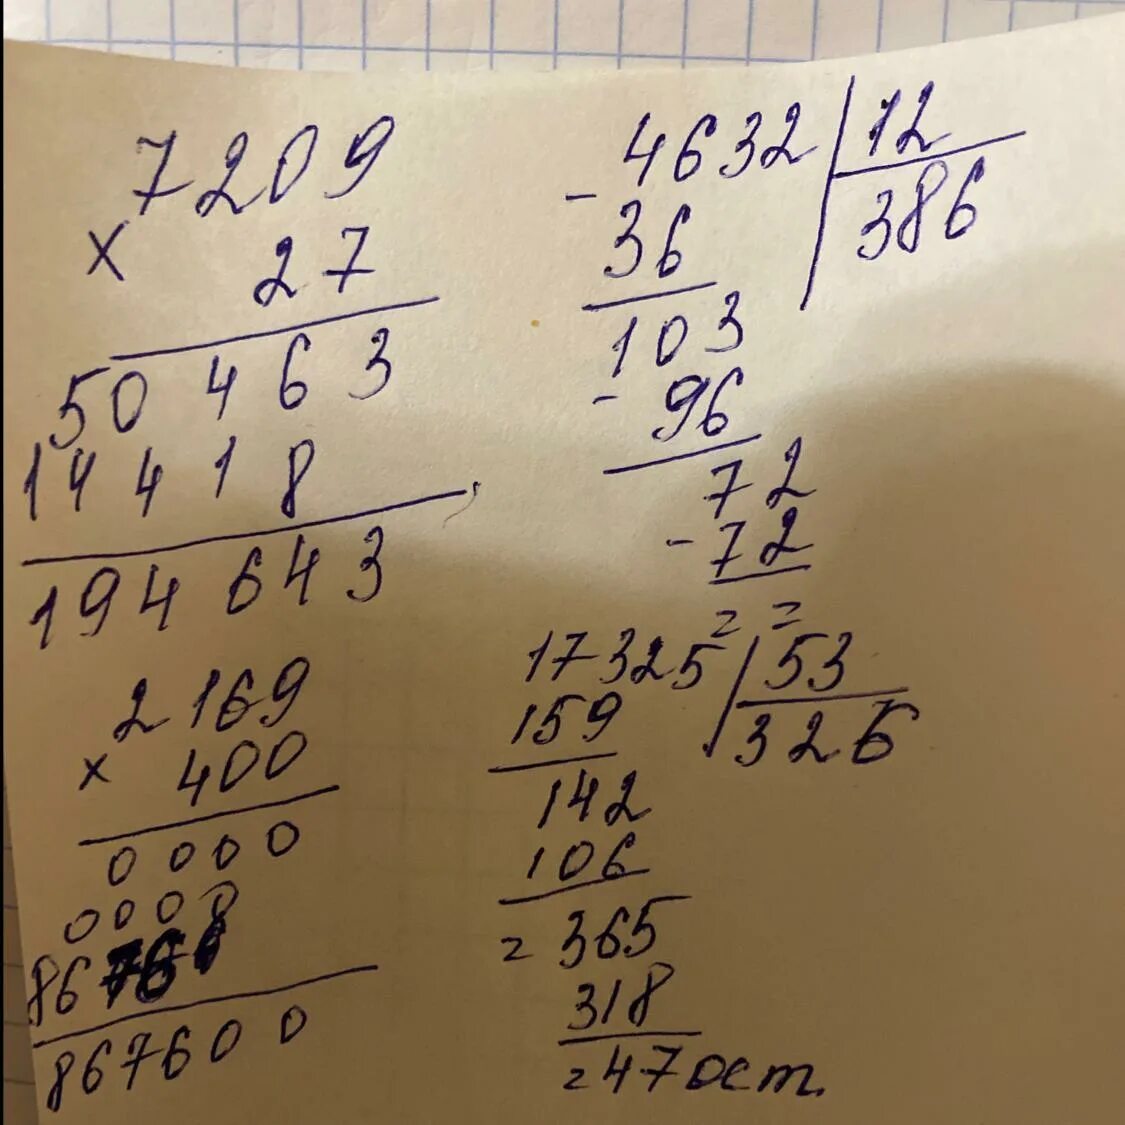 7209
× 27
50463
14418
194643
4632 | 12
- 36
386
103
- 96
72
- 72
= =
2169
× 400
0000
0000
8676
867600
17325 | 53
159
326
142
106
= 365
318
= 47 ост.